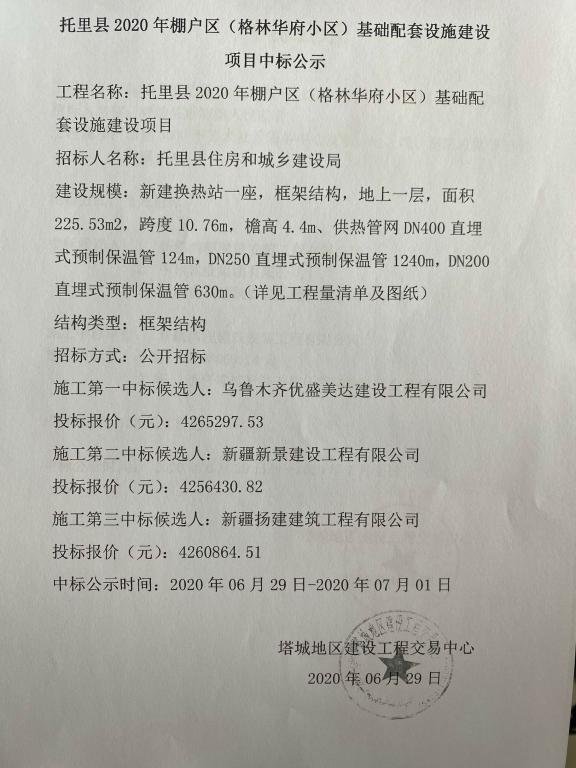 托里县 2020 年棚户区（格林华府小区）基础配套设施建设
项目中标公示
工程名称：托里县 2020 年棚户区（格林华府小区）基础配
套设施建设项目
招标人名称：托里县住房和城乡建设局
建设规模：新建换热站一座，框架结构，地上一层，面积
225.53m2，跨度 10.76m，檐高 4.4m、供热管网 DN400 直埋
式预制保温管 124m，DN250 直埋式预制保温管 1240m，DN200
直埋式预制保温管 630m。（详见工程量清单及图纸）
结构类型：框架结构
招标方式：公开招标
施工第一中标候选人：乌鲁木齐优盛美达建设工程有限公司
投标报价（元）：4265297.53
施工第二中标候选人：新疆新景建设工程有限公司
投标报价（元）：4256430.82
施工第三中标候选人：新疆扬建建筑工程有限公司
投标报价（元）：4260864.51
中标公示时间：2020 年 06 月 29 日-2020 年 07 月 01 日
塔城地区建设工程交易中心
2020 年 06 月 29 日